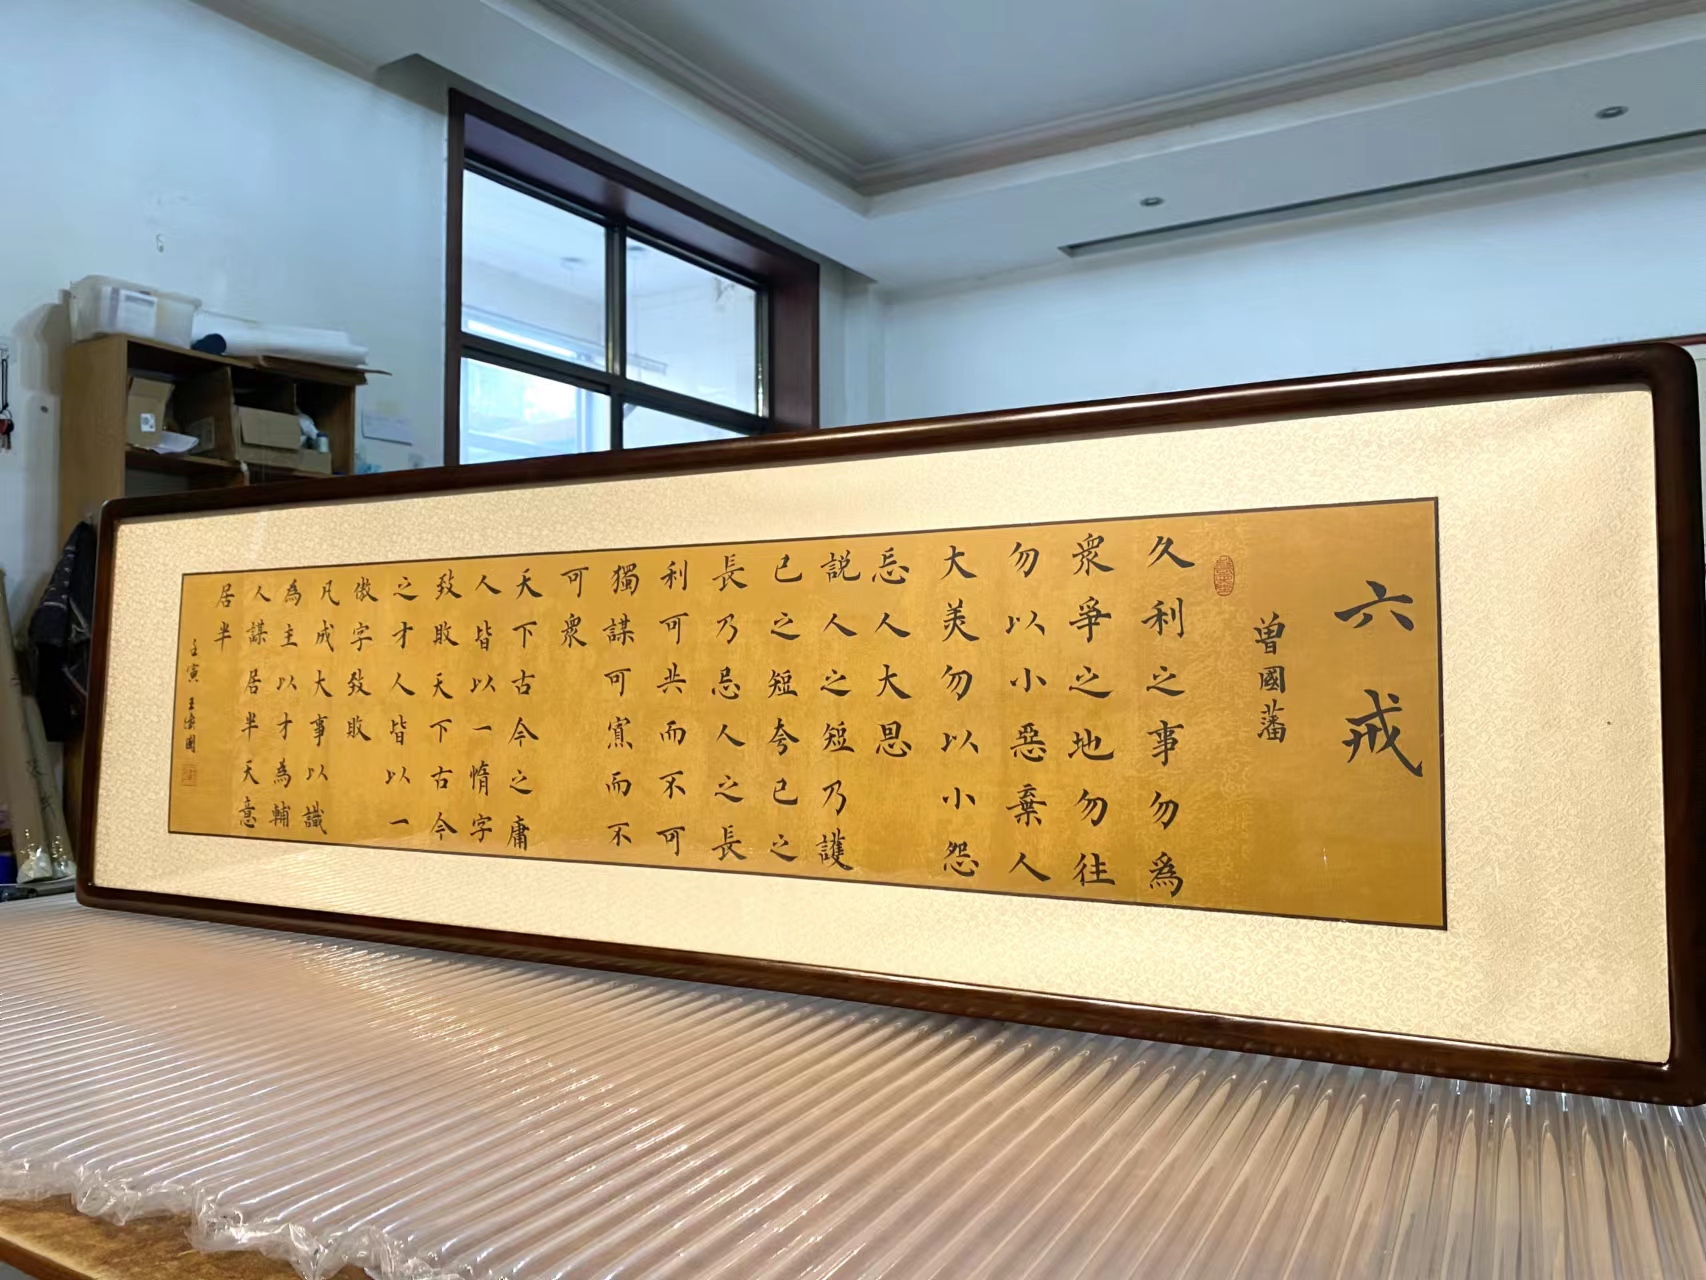 六戒
曾國藩
久利之事勿爲
衆爭之地勿往
勿以小惡棄人
大美勿以小怨
忘人大恩
説人之短乃護
己之短夸己之
長乃忌人之長
利可共而不可
獨謀可寡而不
可衆
天下古今之庸
人皆以一惰字
致敗天下古今
之才人皆以一
傲字致敗
凡成大事以識
為主以才為輔
人謀居半天意
居半
壬寅 王國